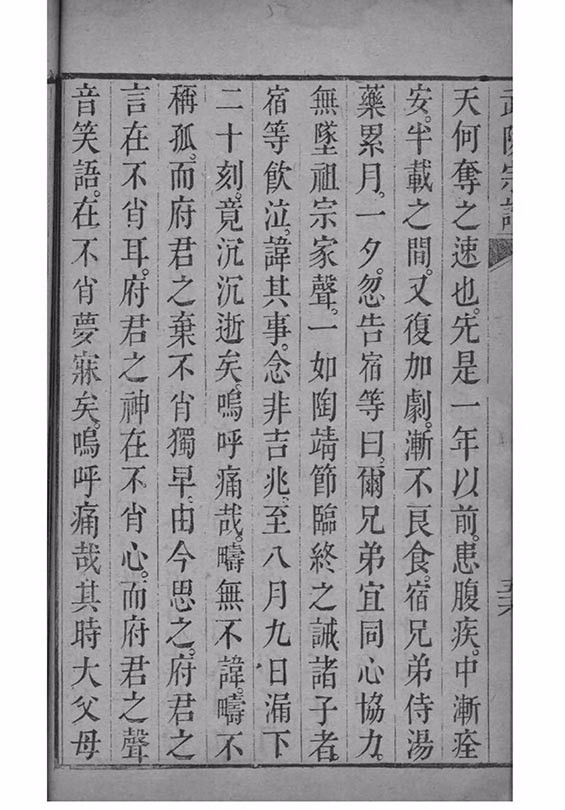 天何奪之速也。先是一年以前。患腹疾。中漸痊
安。半載之間。又復加劇。漸不良食。宿兄弟侍湯
藥累月。一夕。忽告宿等曰。爾兄弟宜同心協力。
無墜祖宗家聲。一如陶靖節臨終之誡諸子者。
宿等飲泣。諱其事。念非吉兆。至八月九日漏下
二十刻。竟沉沉逝矣。嗚呼痛哉。疇無不諱。疇不
稱孤。而府君之棄不肖獨早。由今思之。府君之
言在不肖耳。府君之神在不肖心。而府君之聲
音笑語。在不肖夢寐矣。嗚呼痛哉其時大父母